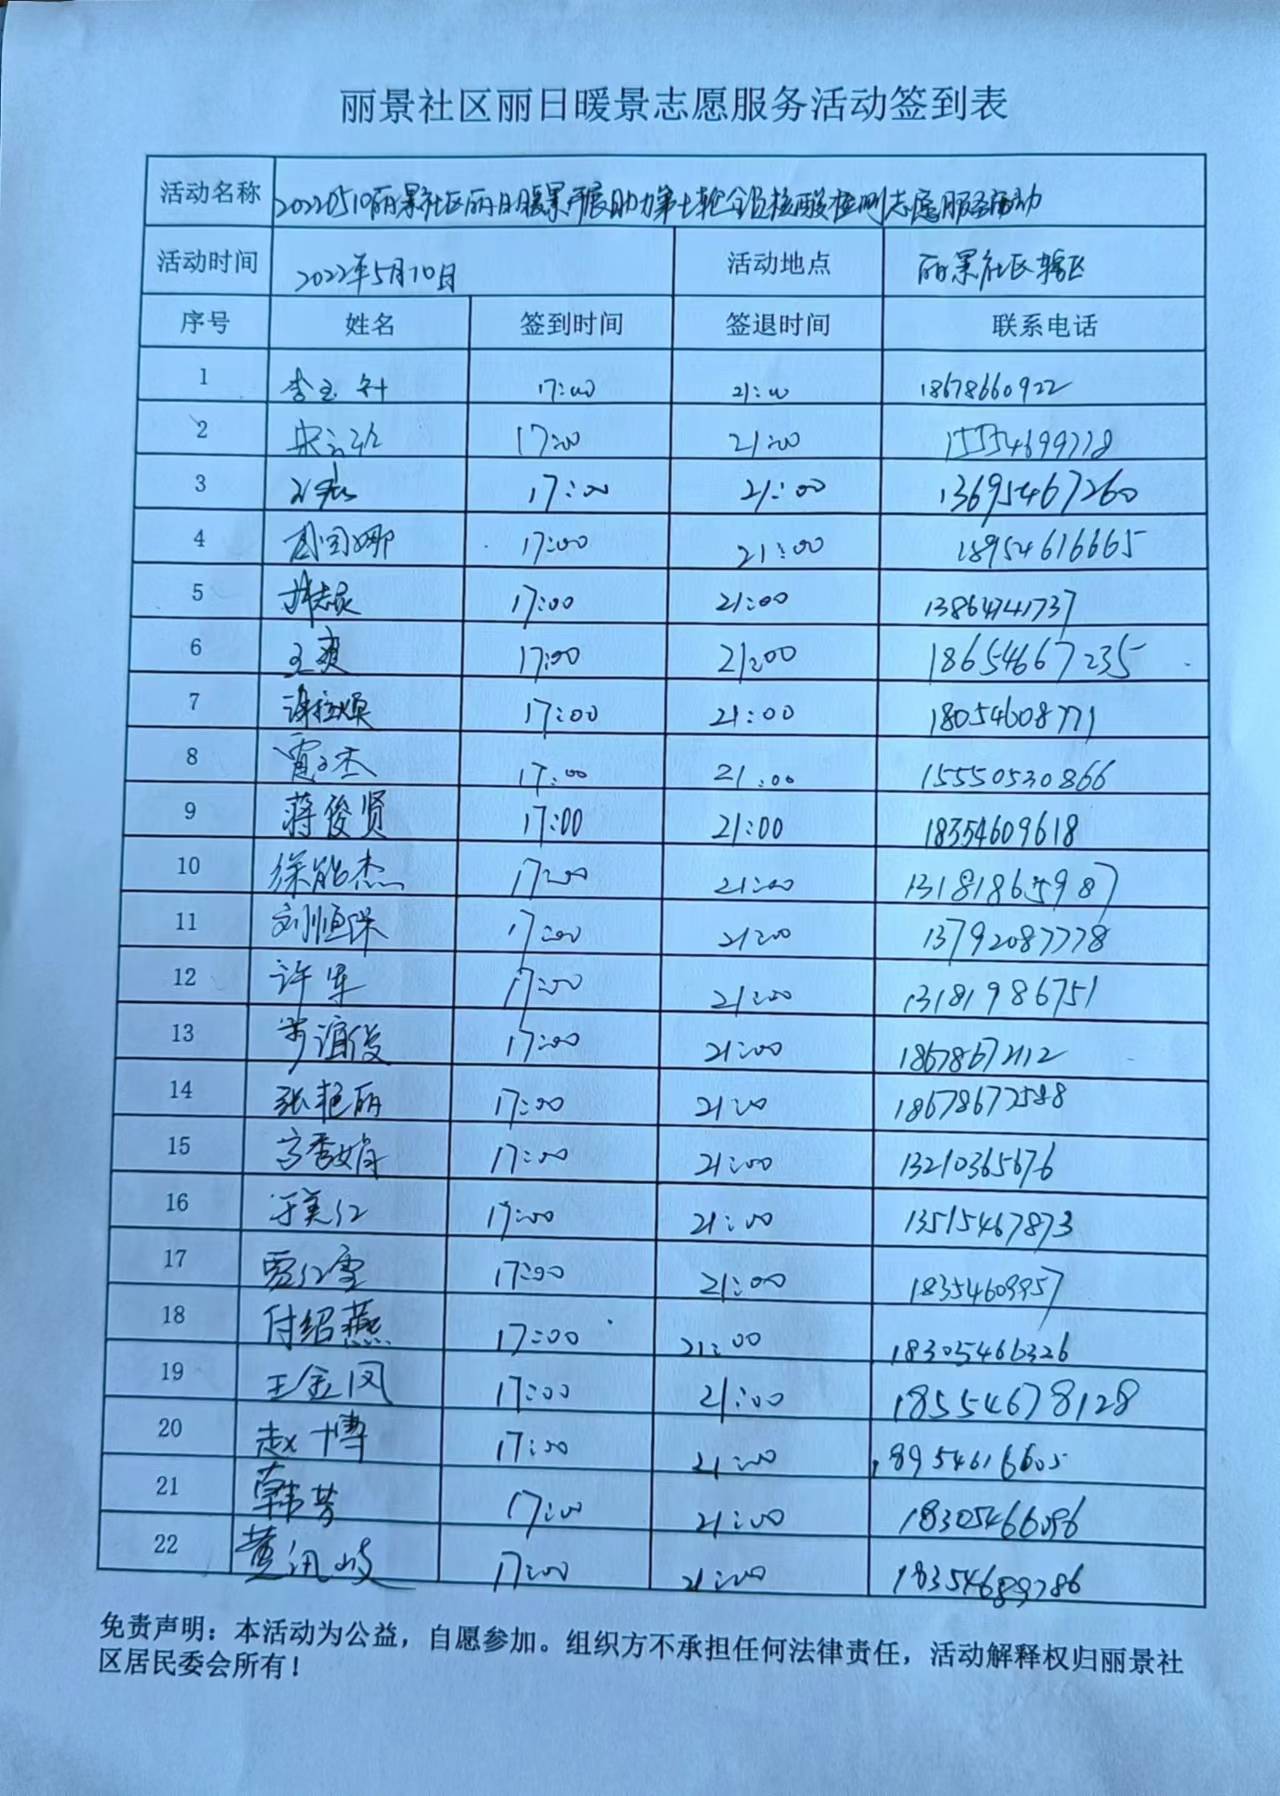 丽景社区丽日暖景志愿服务活动签到表
活动名称 20220510丽景社区丽日暖景开展助力第七轮全员核酸检测志愿服务活动
活动时间 2022年5月10日 活动地点 丽景社区辖区
序号 姓名 签到时间 签退时间 联系电话
1 17:00 21:00 18678660922
2 17:00 21:00 15554699718
3 17:00 21:00 13695467260
4 17:00 21:00 18954616665
5 17:00 21:00 13864741737
6 王爽 17:00 21:00 18654667235
7 17:00 21:00 18054608771
8 17:00 21:00 15550530866
9 蒋俊贤 17:00 21:00 18354609618
10 徐能杰 17:00 21:00
11 刘恒深 17:00 21:00 13792087778
12 许军 17:00 21:00 13181986751
13 17:00 21:00 18678672112
14 张艳丽 17:00 21:00 18678672588
15 高秀娟 17:00 21:00 13210365676
16 于美红 17:00 21:00 13515467873
17 贾红雪 17:00 21:00
18 付绍燕 17:00 21:00 18305466326
19 王金凤 17:00 21:00 18554678128
20 赵博 17:00 21:00 18954616605
21 韩芳 17:00 21:00 18305466096
22 17:00 21:00 18354689786
免责声明：本活动为公益，自愿参加。组织方不承担任何法律责任，活动解释权归丽景社
区居民委会所有！